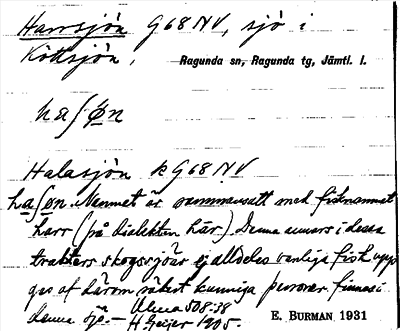 Harrsjön G 68 NV, sjö i
Köttsjön, Ragunda sn, Ragunda tg, Jämtl. l.
haʃøn
Halasjön kG68NV
haʃøn. Namnet är sammansatt med fisknamnet
harr (på dialekten här). Denna annars i dessa
trakters skogssjöar ej alldeles vanliga fisk upp-
ges af därom säkert kunniga personer finnas i
denna sjö. – Alma 508:38
H Geijer 1905.
E. BURMAN 1931